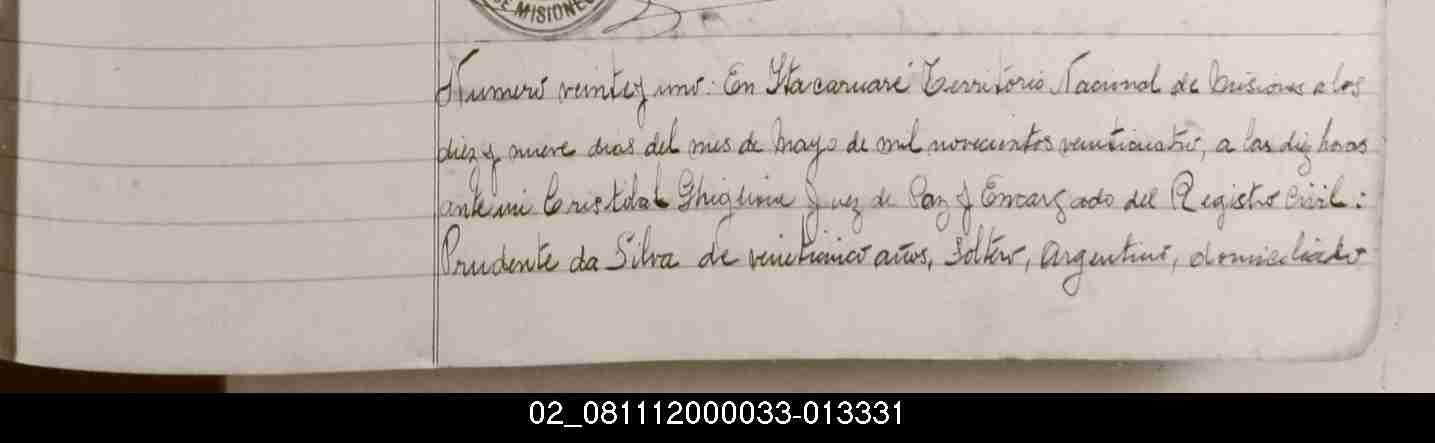 DE MISIONES
Numero veinte y uno: En Itacaruaré Territorio Nacional de Misiones a los
diez y nueve dias del mes de Mayo de mil novecientos veinticuatro, a las diez horas
ante mi Cristobal Ghiglione Juez de Paz y Encargado del Registro Civil:
Prudente da Silva de veinticinco años, soltero, argentino, domiciliado
02_081112000033-013331